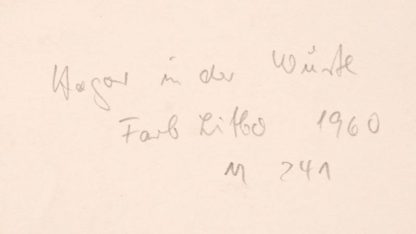 Hagar in der Wüste
Farb Litho 1960
M 241